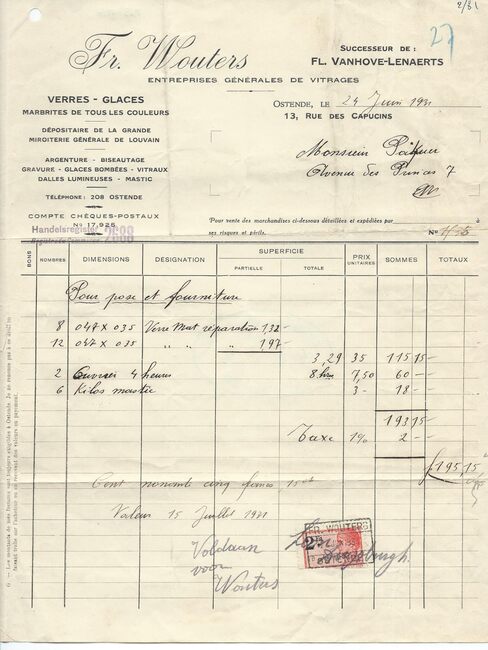 2/31
27
Fr. Wouters
SUCCESSEUR DE :
FL. VANHOVE-LENAERTS
ENTREPRISES GÉNÉRALES DE VITRAGES
VERRES - GLACES
MARBRITES DE TOUS LES COULEURS
DÉPOSITAIRE DE LA GRANDE
MIROITERIE GÉNÉRALE DE LOUVAIN
ARGENTURE - BISEAUTAGE
GRAVURE - GLACES BOMBÉES - VITRAUX
DALLES LUMINEUSES - MASTIC
TÉLÉPHONE : 208 OSTENDE
COMPTE CHÈQUES-POSTAUX
No 17,925
Handelsregister 2698
OSTENDE, LE 24 Juin 1931
13, RUE DES CAPUCINS
Monsieur
Avenue des Princes 7
Pour vente des marchandises ci-dessous détaillées et expédiées par
ses risques et périls.
No
BONS NOMBRES DIMENSIONS DÉSIGNATION SUPERFICIE PRIX UNITAIRES SOMMES TOTAUX
PARTIELLE TOTALE
Pour pose et fourniture
8 047 x 035 Verre Mat réparation 132
12 047 x 035 " " " 197
3,29 35 115 15
2 Ouvrier 4 heures 8 hrs 7,50 60 -
6 Kilos mastic 3- 18 -
193 15
Taxe 1% 2 -
f 195,15
Cent nonante cinq francs 15
Valeur 15 Juillet 1931
Voldaan
voor
Wouters
FR. WOUTERS